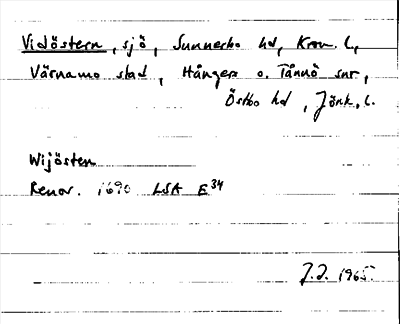 Vidöstern, sjö, Sunnerbo hd, Kron. l,
Värnamo stad, Hånger o. Tånnö snr,
Östbo hd, Jönk. l.
Wijösten
Renov. 1690 LSA E34
J.J. 1965.